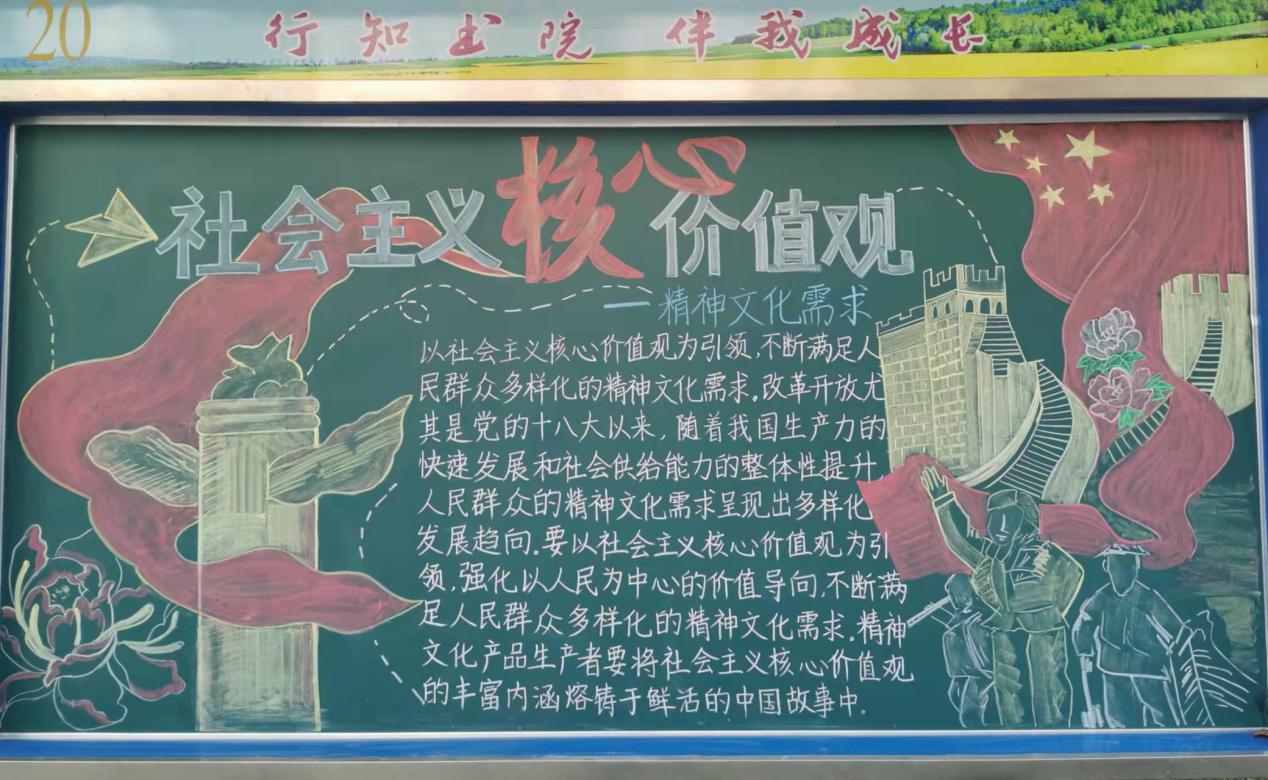 20
行知书院 伴我成长
社会主义核心价值观
—精神文化需求
以社会主义核心价值观为引领,不断满足人
民群众多样化的精神文化需求.改革开放尤
其是党的十八大以来,随着我国生产力的
快速发展和社会供给能力的整体性提升
人民群众的精神文化需求呈现出多样化
发展趋向.要以社会主义核心价值观为引
领,强化以人民为中心的价值导向,不断满
足人民群众多样化的精神文化需求.精神
文化产品生产者要将社会主义核心价值观
的丰富内涵熔铸于鲜活的中国故事中.